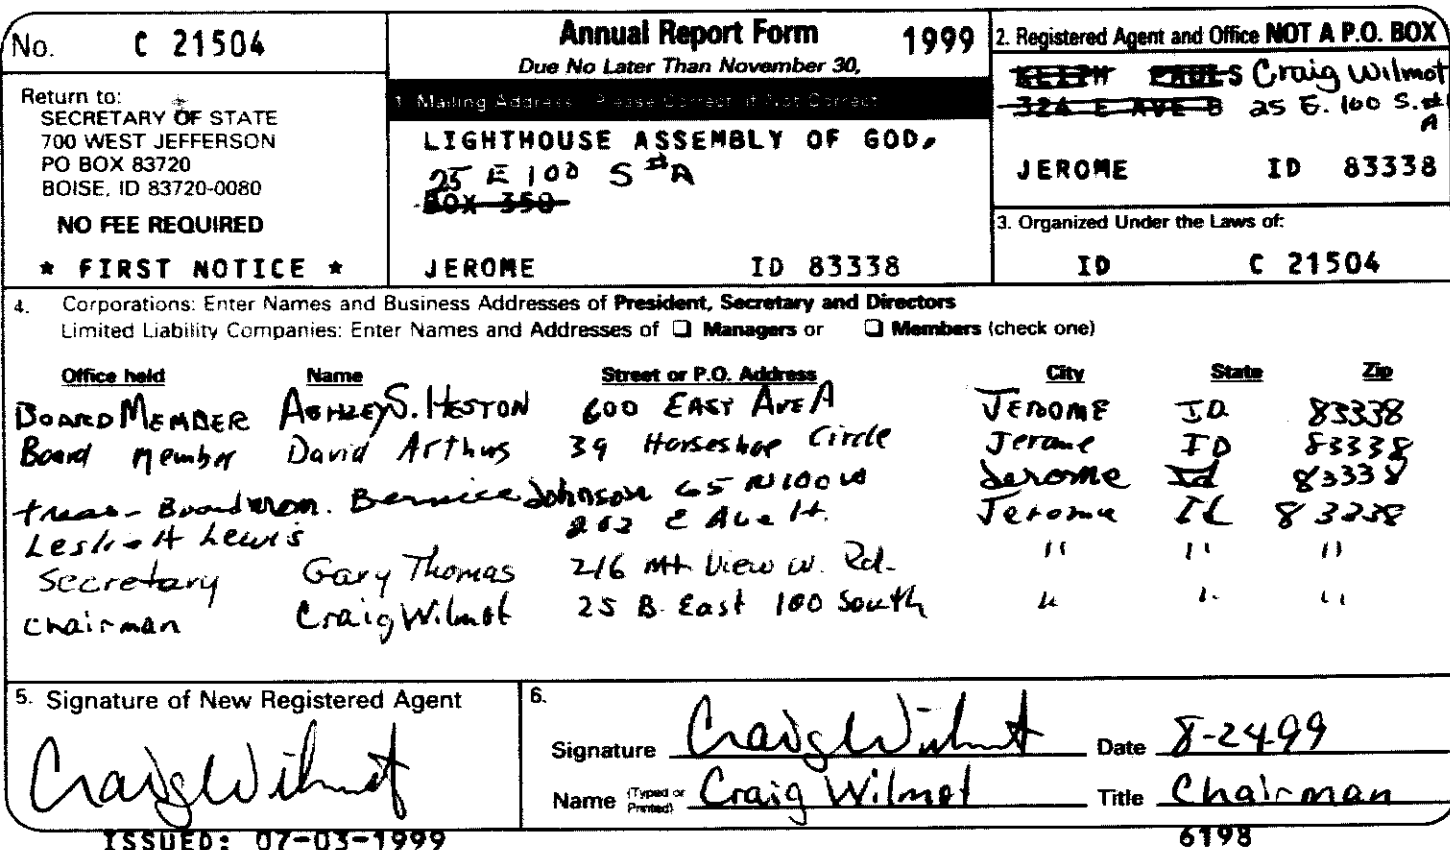 No. C 21504
Annual Report Form 1999
Due No Later Than November 30,
Return to:
SECRETARY OF STATE
700 WEST JEFFERSON
PO BOX 83720
BOISE, ID 83720-0080
NO FEE REQUIRED
* FIRST NOTICE *
1. Mailing Address: Please Correct if Not Correct
LIGHTHOUSE ASSEMBLY OF GOD,
25 E 100 S #A
BOX 350
JEROME ID 83338
2. Registered Agent and Office NOT A P.O. BOX
KEITH PAULS Craig Wilmot
324 E AVE B 25 E. 100 S. #
A
JEROME ID 83338
3. Organized Under the Laws of:
ID C 21504
4. Corporations: Enter Names and Business Addresses of President, Secretary and Directors
Limited Liability Companies: Enter Names and Addresses of ☐ Managers or ☐ Members (check one)
Office held Name Street or P.O. Address City State Zip
BOARD MEMBER ASHLEY S. HESTON 600 EAST AVE A JEROME ID 83338
Board Member David Arthus 39 Horseshoe Circle Jerome ID 83338
treas - Board mem. Bernice Johnson 65 N 100 W Jerome Id 83338
Leslie H Lewis E Ave H. Jerome 83338
Secretary Gary Thomas 216 Mt View W. Rd. " " "
Chairman Craig Wilmot 25 B. East 100 South " " "
5. Signature of New Registered Agent
Craig Wilmot
6.
Signature Craig Wilmot Date 8-24-99
Name (Typed or Printed) Craig Wilmot Title Chairman
ISSUED: 07-03-1999 6198